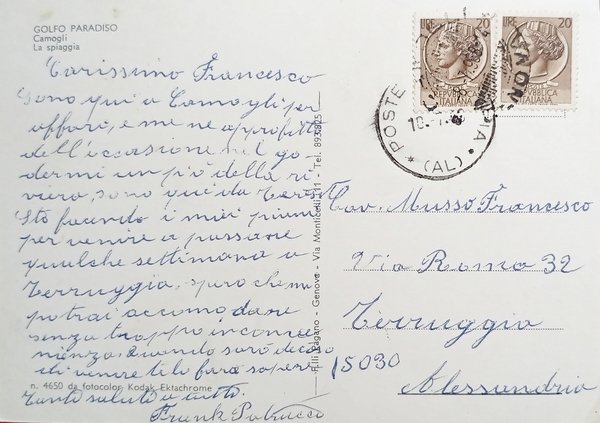 GOLFO PARADISO
Camogli
La spiaggia
Carissimo Francesco
Sono qui a Camogli per
affari, e me ne approfitt
dell'occasione nel go-
dermi un pò della ri-
viera, sono qui da
Sto facendo i miei piani
per venire a passare
qualche settimana a
Terruggia, spero che mi
potrai accomodare
senza troppo inconve-
nienza. Quando sarò deciso
di venire te lo farò sapere
n. 4650 da fotocolor Kodak Ektachrome
Tanti saluti a tutti.
Frank Patrucco
F.lli Pagano - Genova - Via Monticelli 11 - Tel. 893825
LIRE 20
POSTE REPVBBLICA ITALIANA
LIRE 20
REPVBBLICA ITALIANA
POSTE
(AL)
Cav. Musso Francesco
Via Roma 32
Terruggia
15030
Alessandria